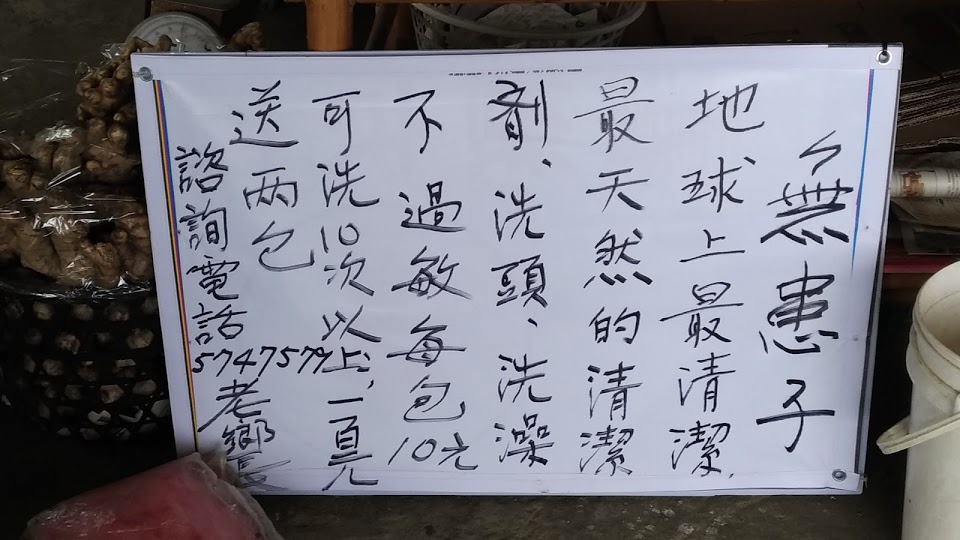 無患子
地球上最清潔.
最天然的清潔
劑、洗頭、洗澡
不過敏每包10元
可洗10次以上、一百元
送两包
諮詢電話
5747579
老鄉長